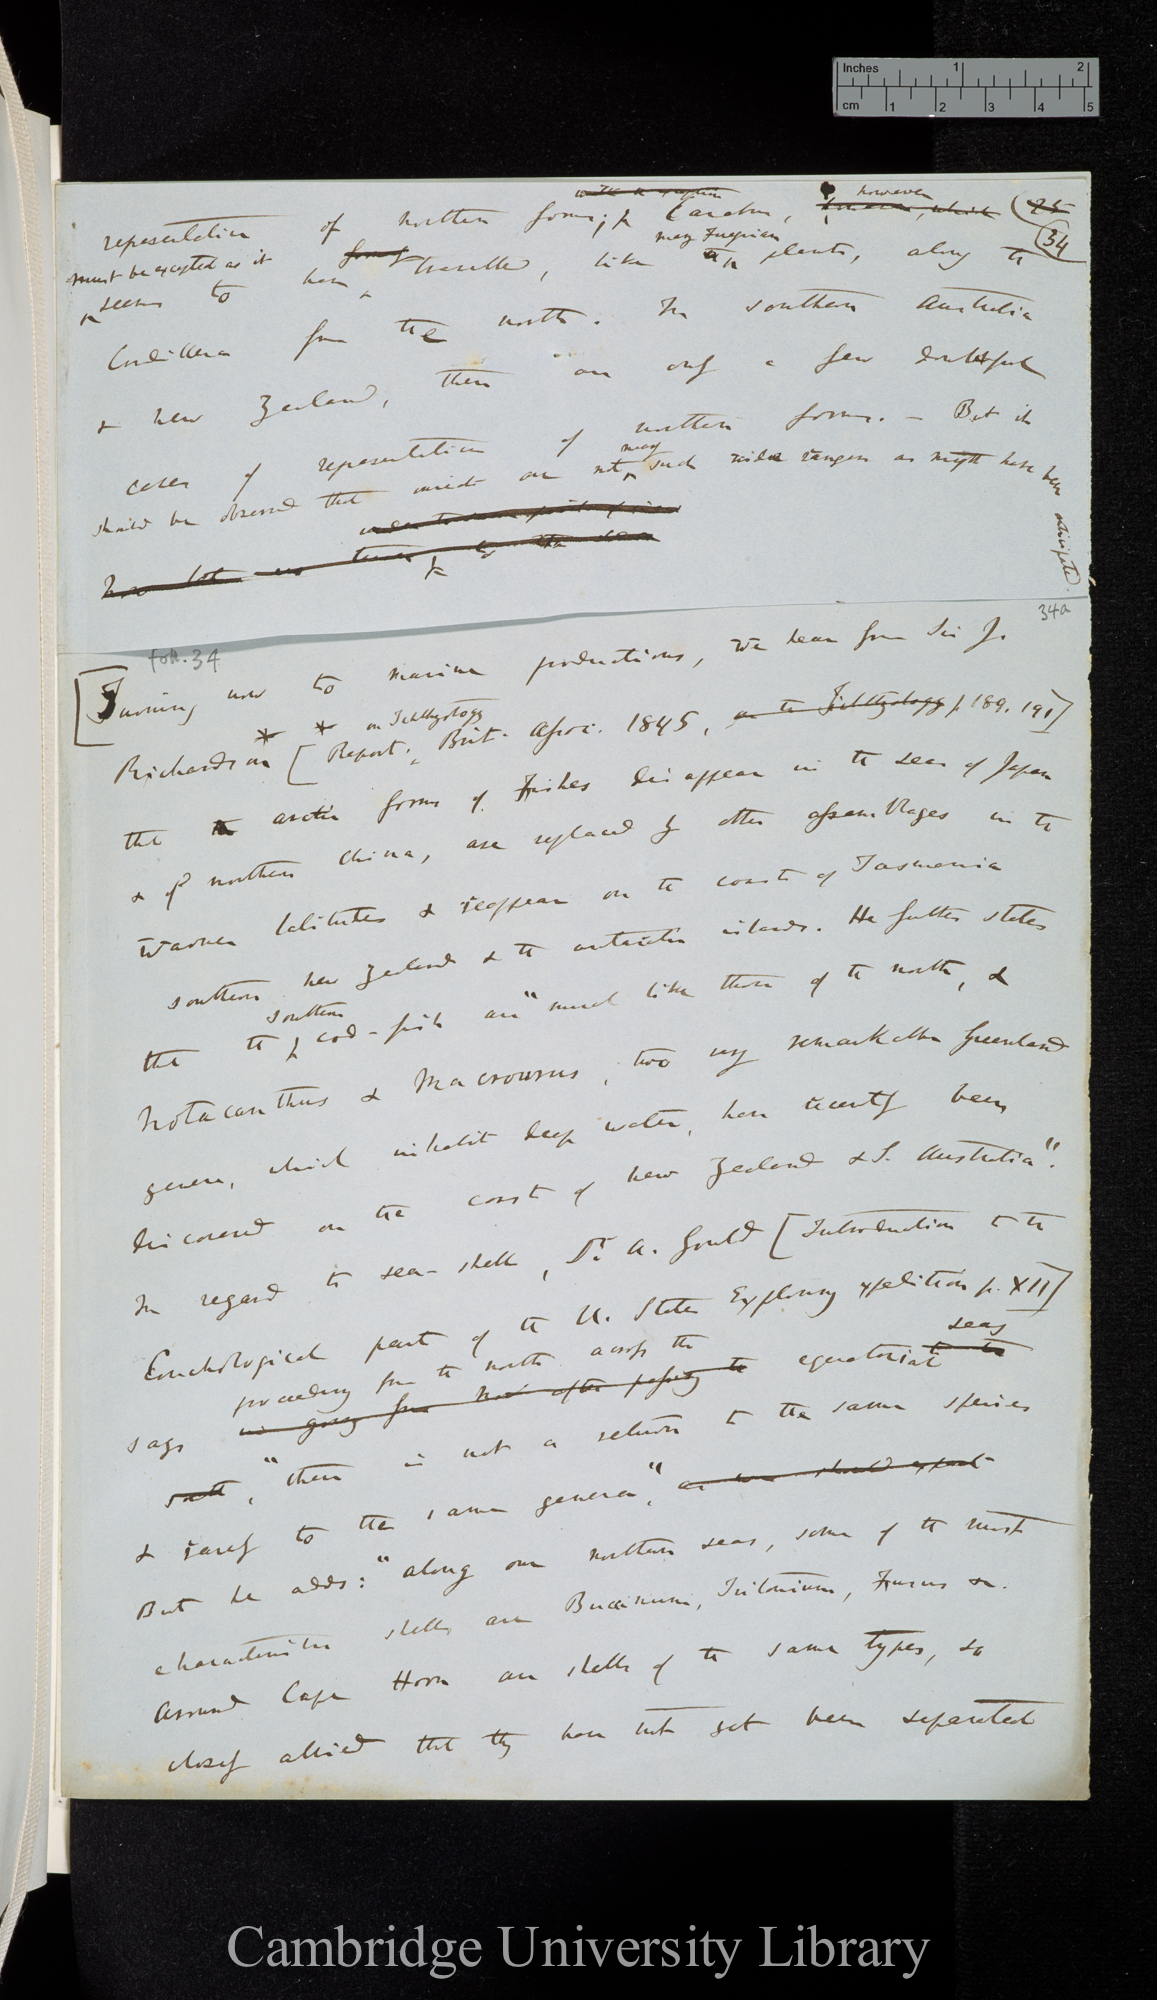 Inches 1 2
cm 1 2 3 4 5
25
34
representation of northern forms; Carabus, however
must be excepted as it
seems to have travelled, like many Fuegian plants, along the
Cordillera from the north. In southern Australia
& New Zealand, there are only a few doubtful
cases of representation of northern forms. — But it
should be observed that insects are not many such wide rangers as might have been anticipated.
34a
for. 34
[Turning now to marine productions, we hear from Sir J.
Richardson [Report on Ichthyology Brit. Assoc. 1845, on the Ichthyology p. 189, 191]
that the arctic forms of Fishes disappear in the seas of Japan
& of northern China, are replaced by other assemblages in the
warmer latitudes & reappear on the coasts of Tasmania
southern New Zealand & the antarctic islands. He further states
that the southern cod-fish are "much like those of the north, &
Notacanthus & Macrourus, two very remarkable Greenland
genera, which inhabit deep water, have recently been
discovered on the coast of New Zealand & S. Australia".
In regard to sea-shells, Dr. A. Gould [Introduction to the
Conchological part of the U. States Exploring expedition p. XII]
proceeding from the north across the
says in going from north after passing the equatorial seas
south, "there is not a return to the same species
& rarely to the same genera", as we should expect
But he adds: "along our northern seas, some of the most
characteristic shells are Buccinum, Tritonium, Fusus &c.
Around Cape Horn are shells of the same types, so
closely allied that they have not yet been separated
Cambridge University Library